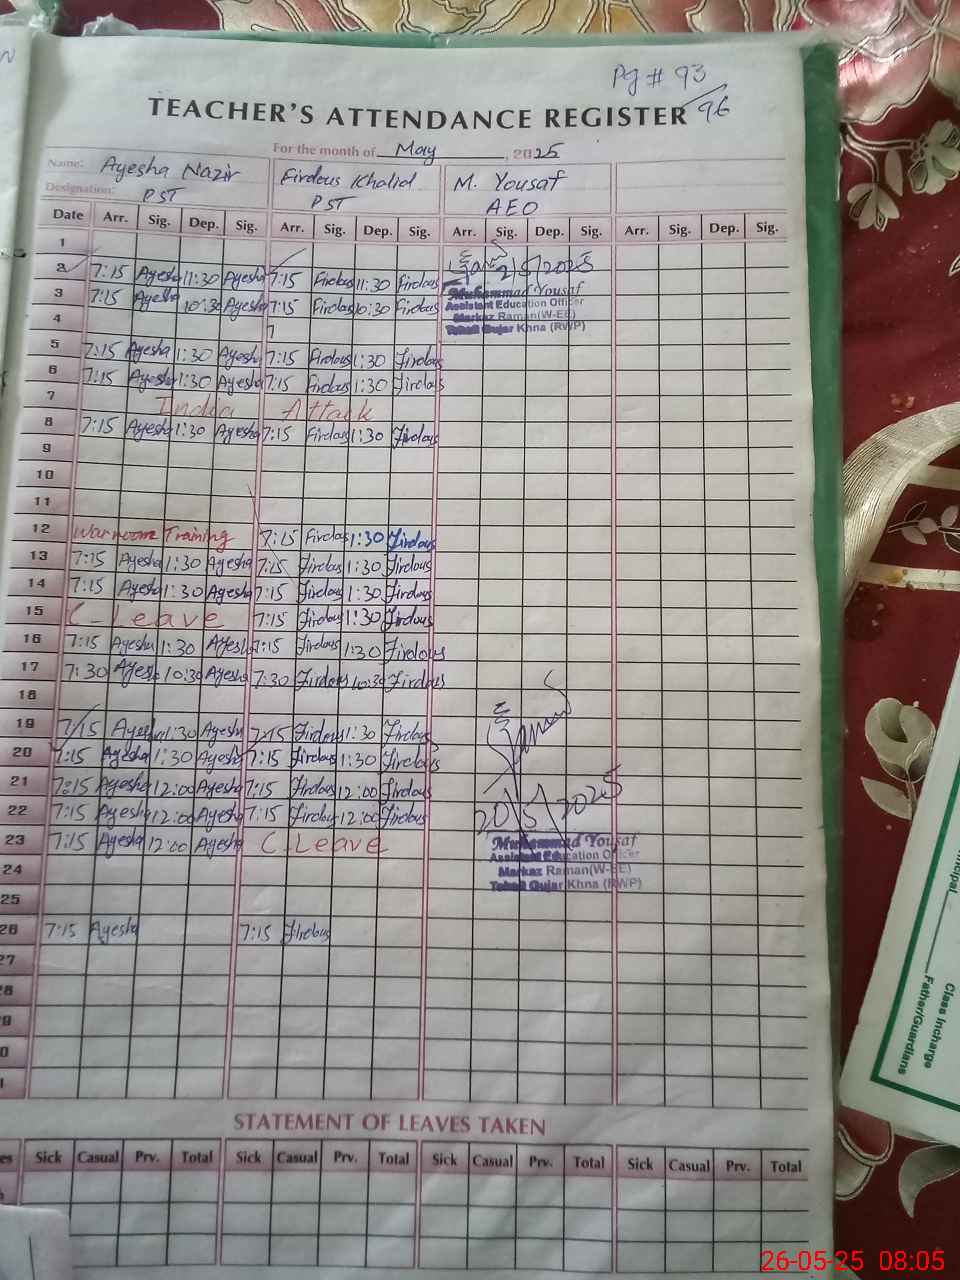 Pg # 93
96
TEACHER'S ATTENDANCE REGISTER
For the month of May, 2025
Name: Ayesha Nazir Firdous Khalid M. Yousaf
Designation: PST PST AEO
Date Arr. Sig. Dep. Sig. Arr. Sig. Dep. Sig. Arr. Sig. Dep. Sig. Arr. Sig. Dep. Sig.
1
2 7:15 Ayesha 11:30 Ayesha 7:15 Firdous 11:30 Firdous 2/5/2025
3 7:15 Ayesha 10:30 Ayesha 7:15 Firdous 10:30 Firdous Muhammad Yousaf
Assistant Education Officer
Markaz Raman(W-EE)
4 7 Tehsil Gujar Khna (RWP)
5 7:15 Ayesha 1:30 Ayesha 7:15 Firdous 1:30 Firdous
6 7:15 Ayesha 1:30 Ayesha 7:15 Firdous 1:30 Firdous
7 India Attack
8 7:15 Ayesha 1:30 Ayesha 7:15 Firdous 1:30 Firdous
9
10
11
12 War room Training 7:15 Firdous 1:30 Firdous
13 7:15 Ayesha 1:30 Ayesha 7:15 Firdous 1:30 Firdous
14 7:15 Ayesha 1:30 Ayesha 7:15 Firdous 1:30 Firdous
15 C_Leave 7:15 Firdous 1:30 Firdous
16 7:15 Ayesha 1:30 Ayesha 7:15 Firdous 1:30 Firdous
17 7:30 Ayesha 10:30 Ayesha 7:30 Firdous 10:30 Firdous
18
19 7:15 Ayesha 1:30 Ayesha 7:15 Firdous 1:30 Firdous
20 7:15 Ayesha 1:30 Ayesha 7:15 Firdous 1:30 Firdous
21 7:15 Ayesha 12:00 Ayesha 7:15 Firdous 12:00 Firdous
22 7:15 Ayesha 12:00 Ayesha 7:15 Firdous 12:00 Firdous 20/5/2025
23 7:15 Ayesha 12:00 Ayesha C.Leave Muhammad Yousaf
Assistant Education Officer
24 Markaz Raman(W-EE)
Tehsil Gujar Khna (RWP)
25
26 7:15 Ayesha 7:15 Firdous
27
STATEMENT OF LEAVES TAKEN
Sick Casual Prv. Total Sick Casual Prv. Total Sick Casual Prv. Total Sick Casual Prv. Total
Class Incharge
Father/Guardians
26-05-25 08:05